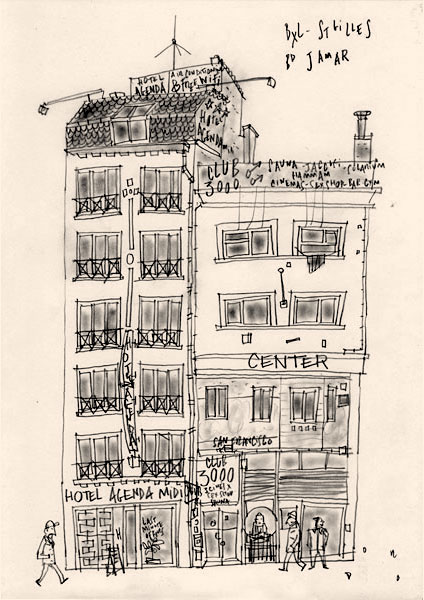 BXL - ST GILLES
BD JAMAR
HOTEL
AGENDA
AIR CONDITION
& FREE WIFI
HOTEL
AGENDA
CLUB
3000
SAUNA - JACUZZI - SOLARIUM
HAMMAM
CINEMAS - SEXSHOP BAR GYM
CENTER
SAN FRANCISCO
CLUB
3000
SAUNA
HOTEL AGENDA MIDI